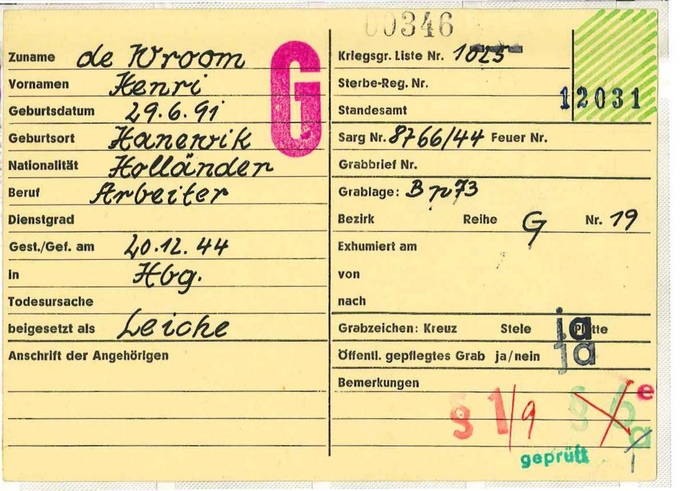 00346
Zuname de Wroom
Vornamen Henri
Geburtsdatum 29.6.91
Geburtsort Hanerwik
Nationalität Holländer
Beruf Arbeiter
Dienstgrad
Gest./Gef. am 20.12.44
in Hbg.
Todesursache
beigesetzt als Leiche
Anschrift der Angehörigen
G
Kriegsgr. Liste Nr. 1025
Sterbe-Reg. Nr.
Standesamt
12031
Sarg Nr. 8766/44 Feuer Nr.
Grabbrief Nr.
Grablage: Bp73
Bezirk Reihe G Nr. 19
Exhumiert am
von
nach
Grabzeichen: Kreuz Stele ja Platte
Öffentl. gepflegtes Grab ja/nein ja
Bemerkungen
§ 1/9 § e
geprüft